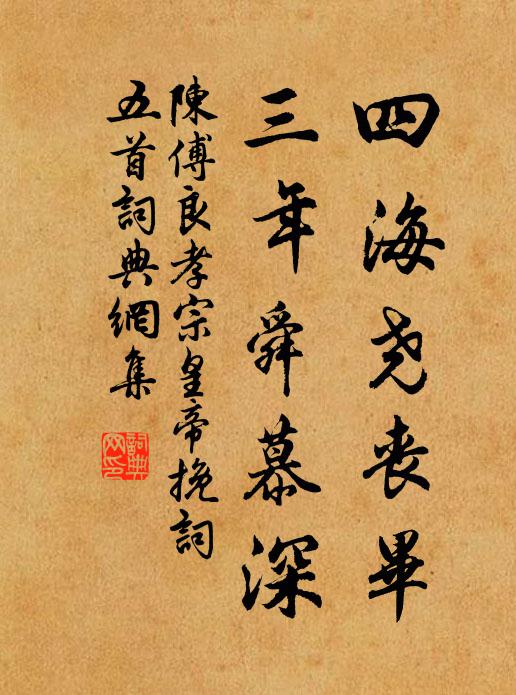 四海尧丧畢
三年舜慕深
陳傅良孝宗皇帝挽詞
五首詞典網集
詞典网印